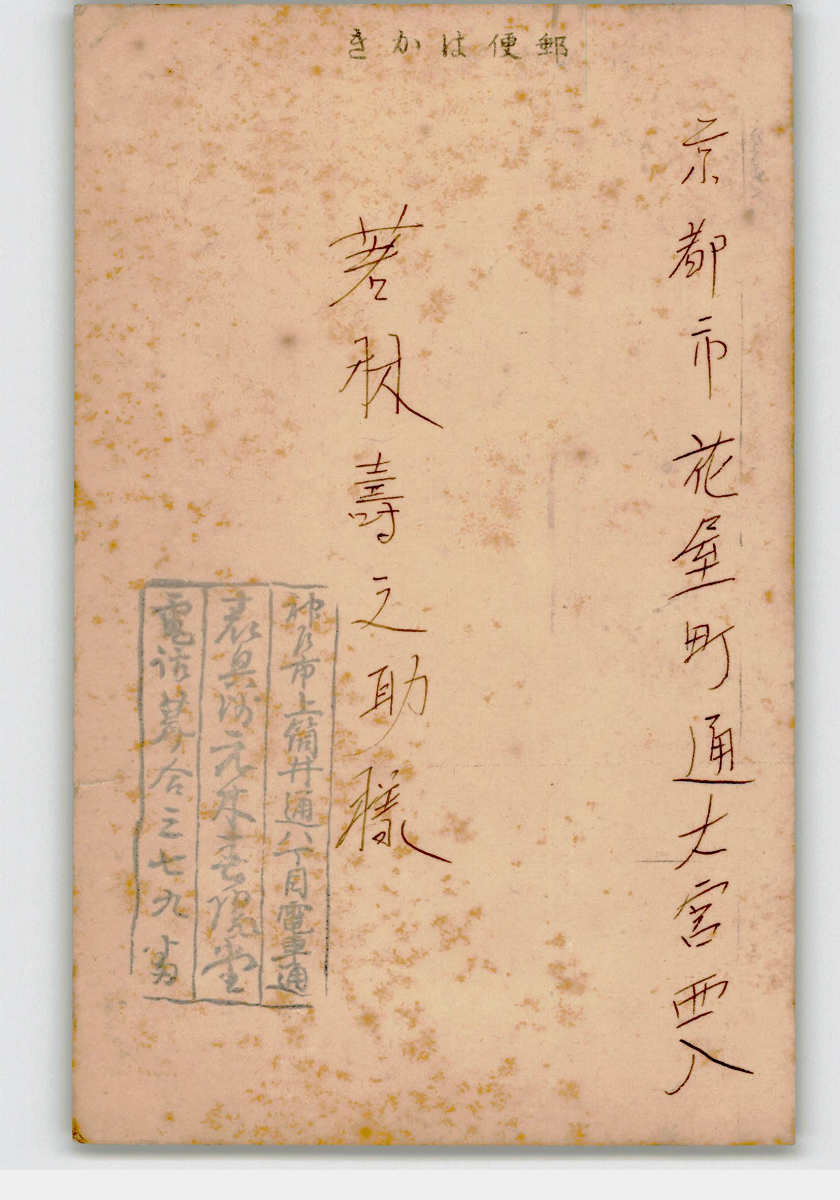 郵便はかき
京都市花屋町通大宮西入
若林壽之助様
神戸市上筒井通八丁目電車通
表具師
電話葺合三七九番